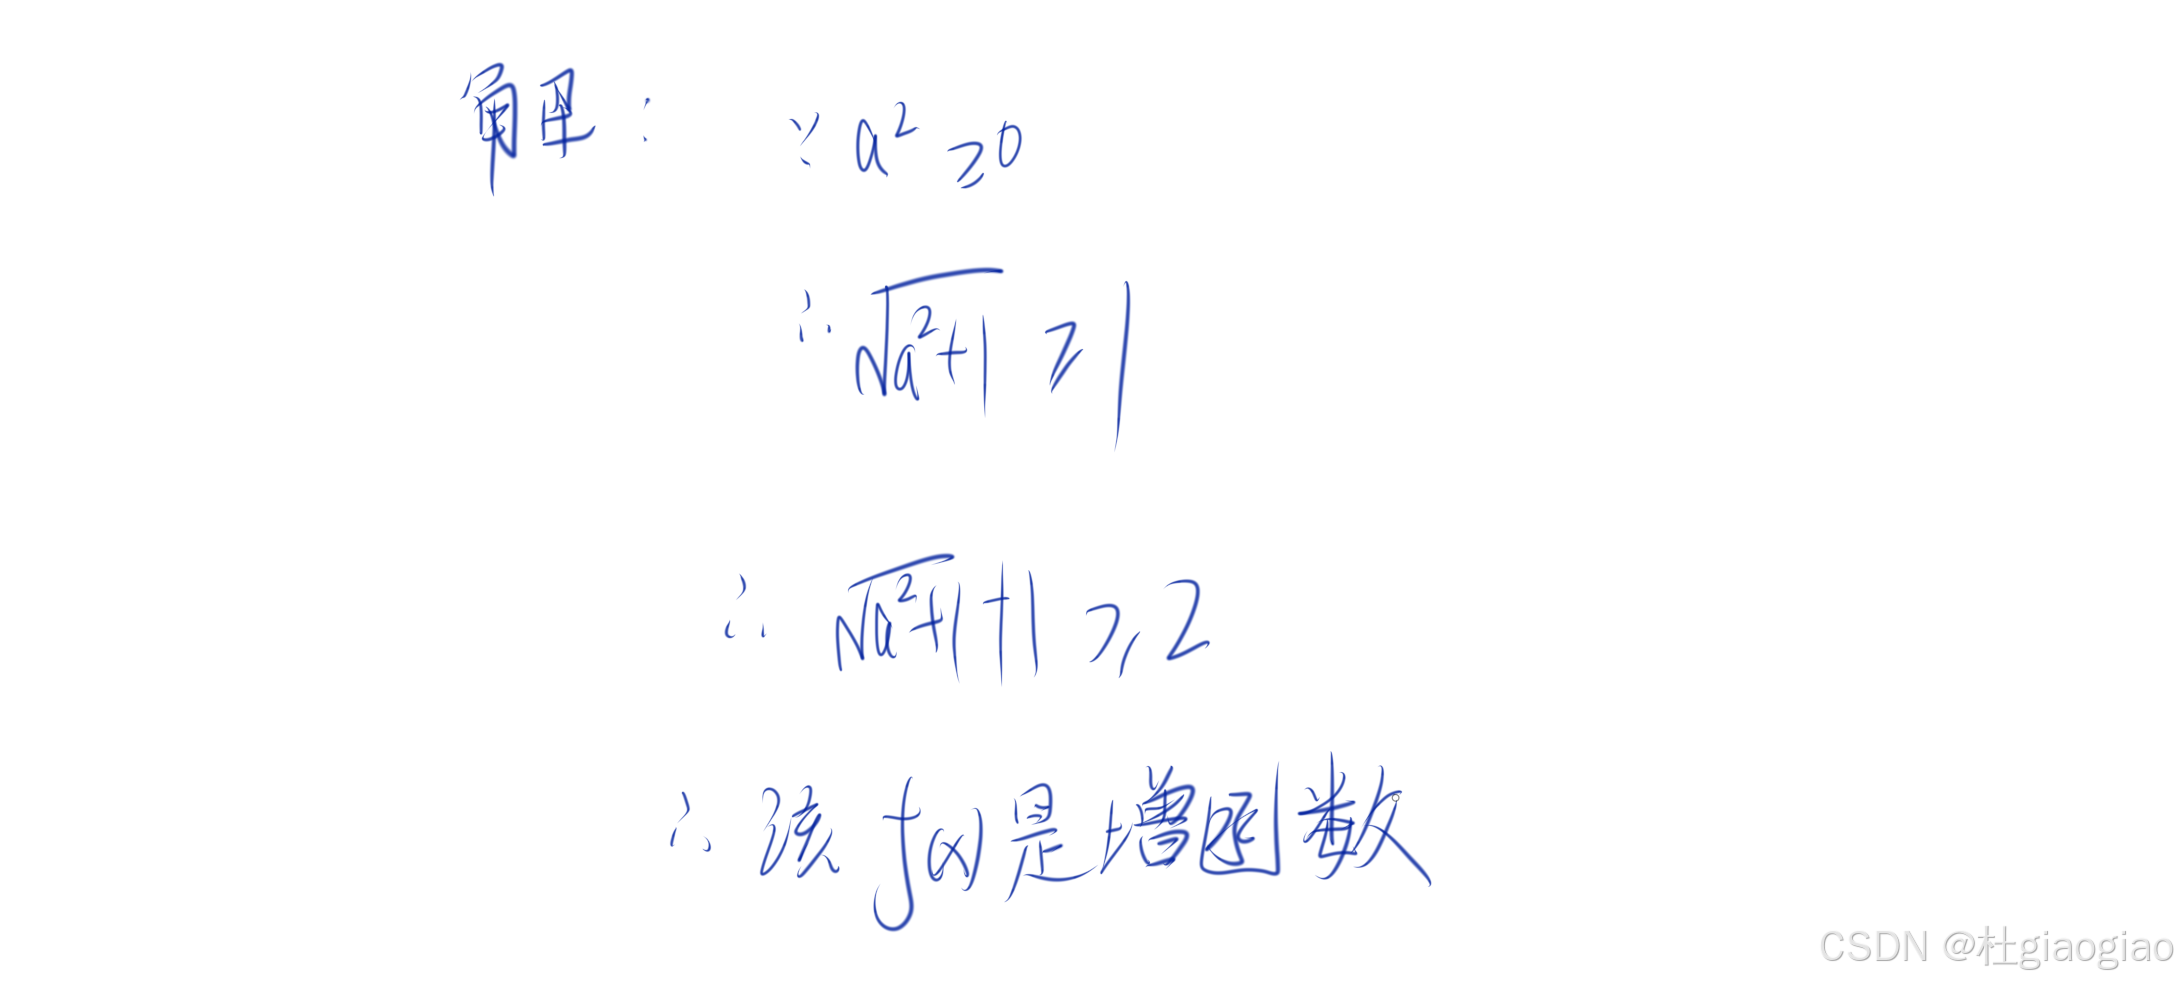 解： ∵ a² ≥ 0
∴ √(a²+1) ≥ 1
∴ √(a²+1) + 1 ≥ 2
∴ 该 f(x) 是增函数
CSDN @杜giaogiao